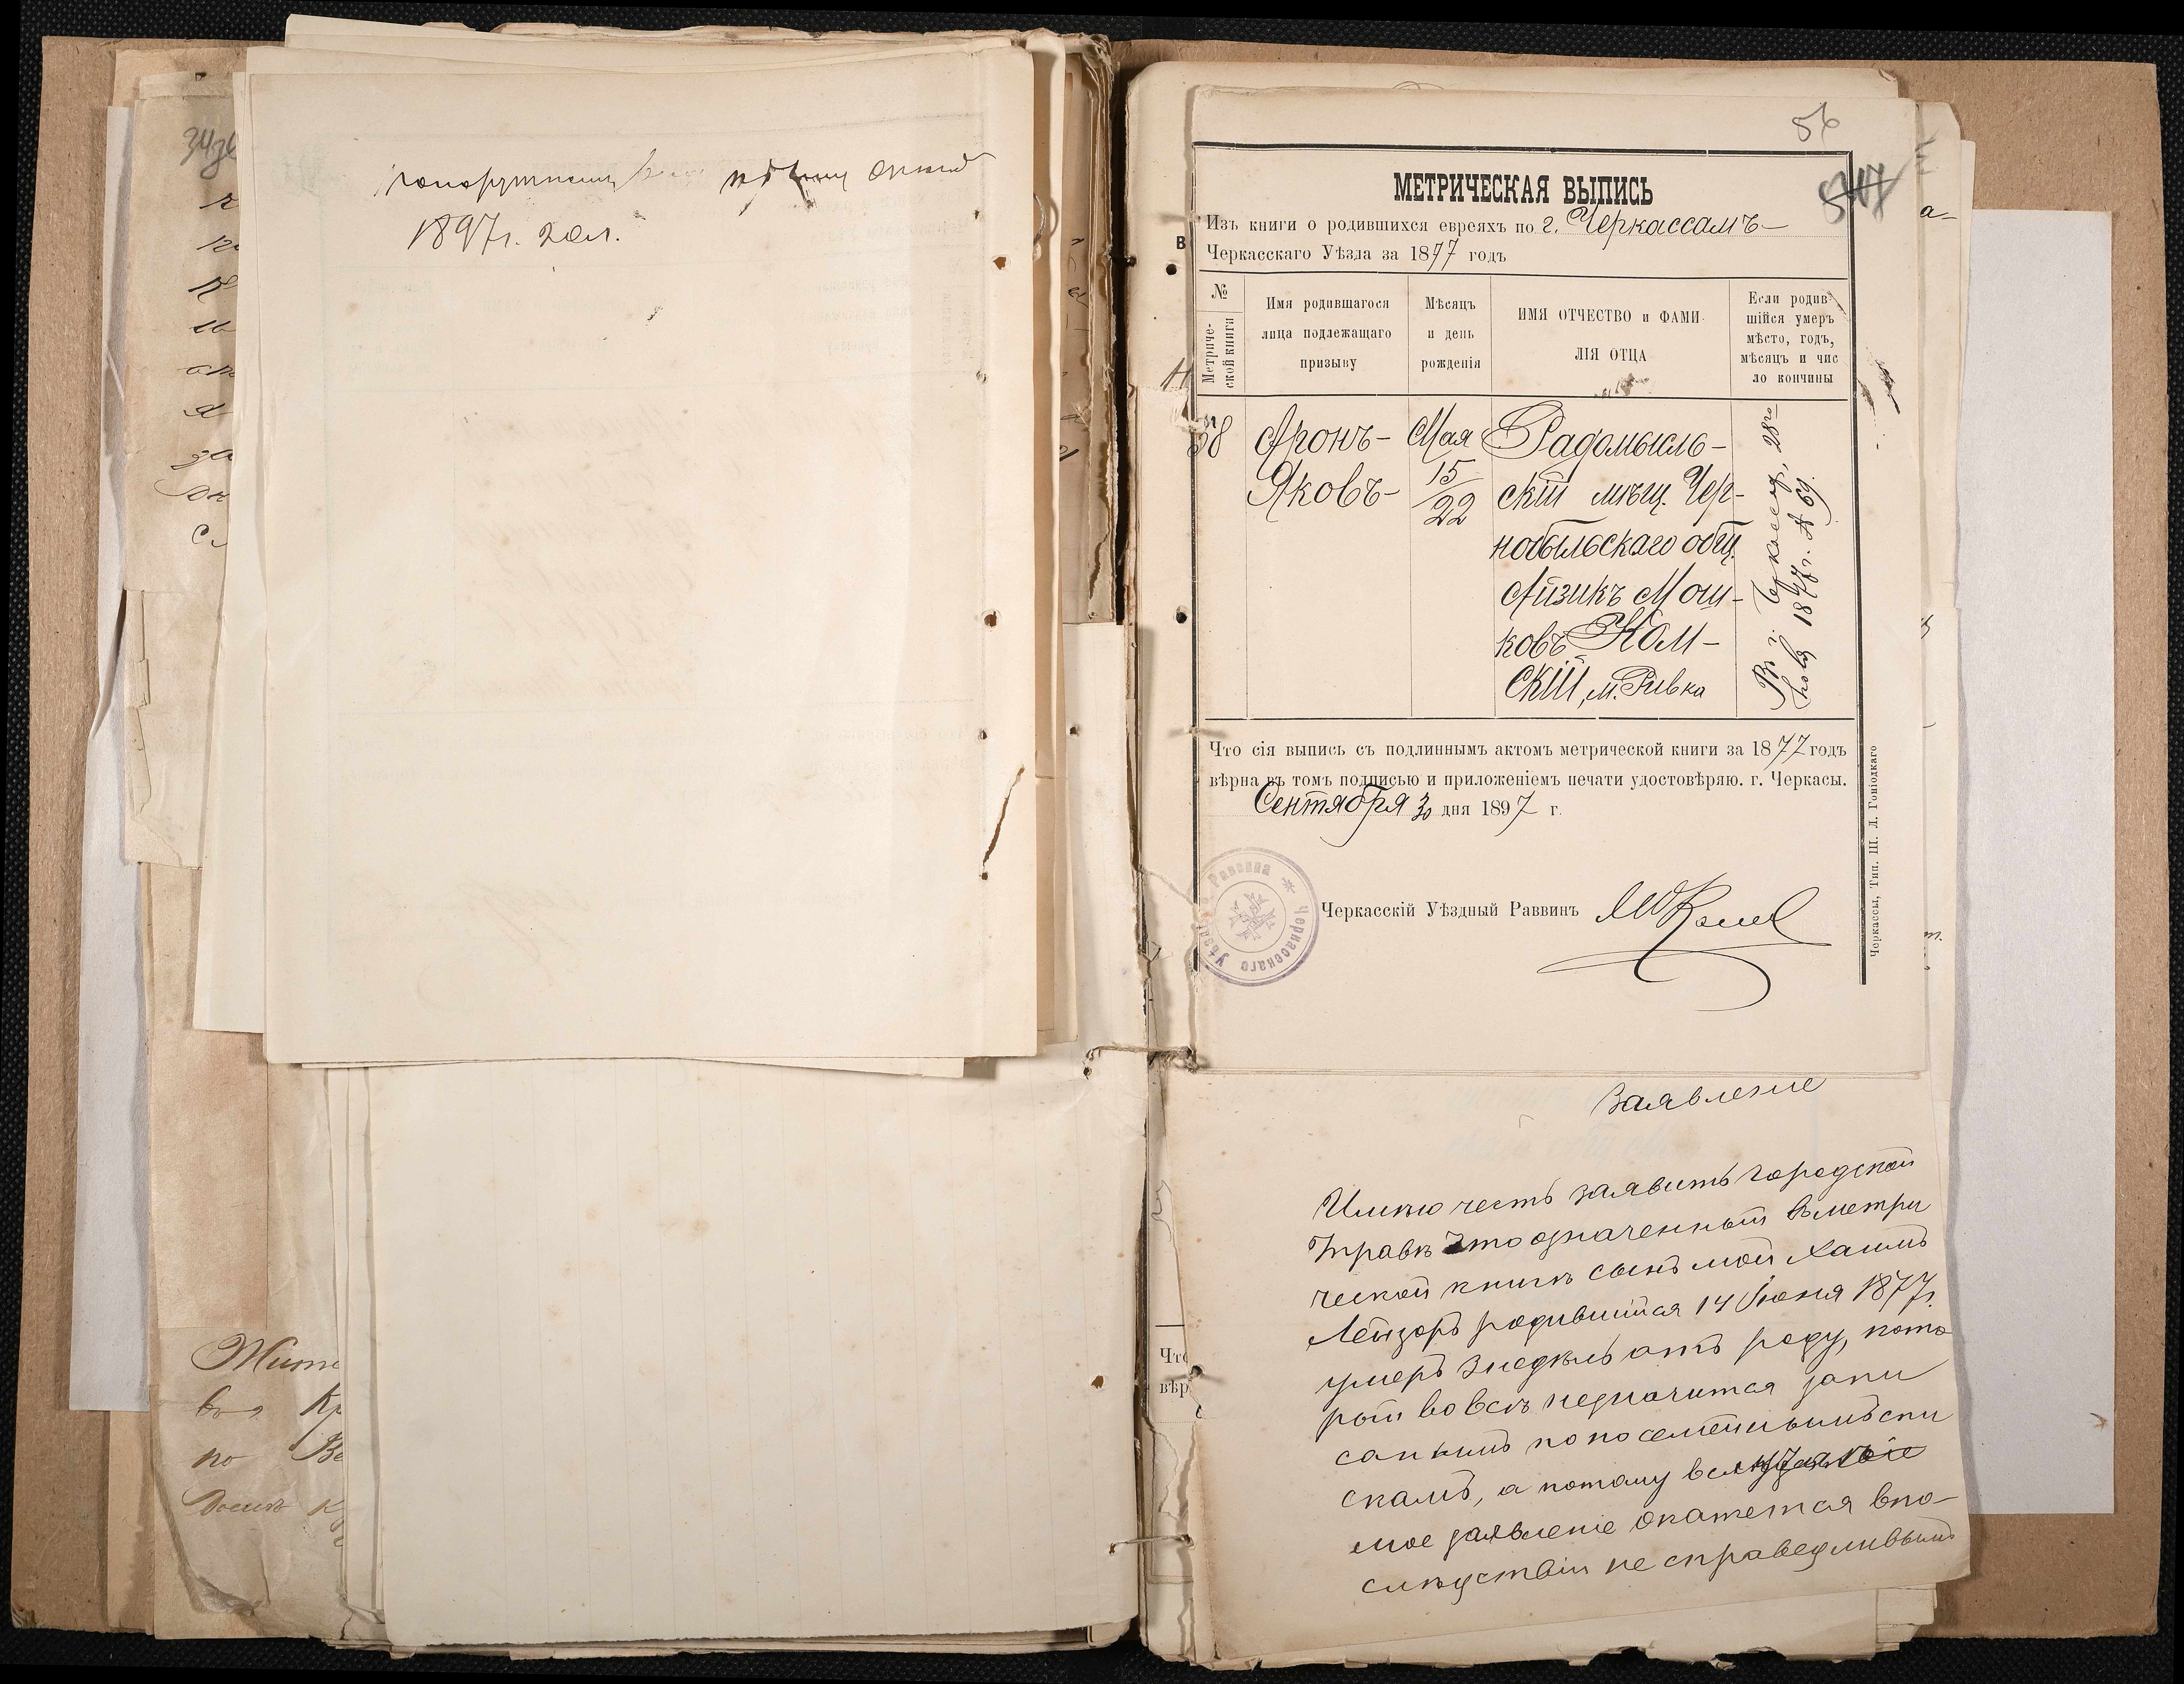 1897 г.
56
МЕТРИЧЕСКАЯ ВЫПИСЬ
Изъ книги о родившихся евреяхъ по г. Черкассамъ
Черкасскаго Уѣзда за 1877 годъ
№ Метриче-ской книги
Имя родившагося лица подлежащаго призыву
Мѣсяцъ и день рожденія
ИМЯ ОТЧЕСТВО и ФАМИ-ЛІЯ ОТЦА
Если родив-шійся умеръ мѣсто, годъ, мѣсяцъ и чис ло кончины
58 Аронъ- Мая Радомысль-
Яковъ- 15/22 скій мѣщ. Чер-
нобыльскаго общ.
Айзикъ Мош-
ковъ Ком-
скій, м. Ривка
Въ г. Черкассах, 28го
1877 г. № 69.
Что сія выпись съ подлиннымъ актомъ метрической книги за 1877 годъ
вѣрна въ томъ подписью и приложеніемъ печати удостовѣряю. г. Черкасы.
Сентября 30 дня 1897 г.
Черкасскій Уѣздный Раввинъ
Черкасскаго Уѣзд Раввина
Черкассы, Тип. Ш. Л. Гоніодкаго
Заявление
Имѣю честь заявить городской
Управѣ что означенный в метри
ческой книгѣ сынъ мой Хаимъ
Лейзоръ родившийся 14 Іюня 1877 г.
умеръ 3 недѣль отъ роду, кото
рый вовсе незначится запи
саннымъ по посемейнымъ спи
скамъ, а потому если
мое заявленіе окажется впо-
слѣдствіи не справедливымъ
Что
вѣр